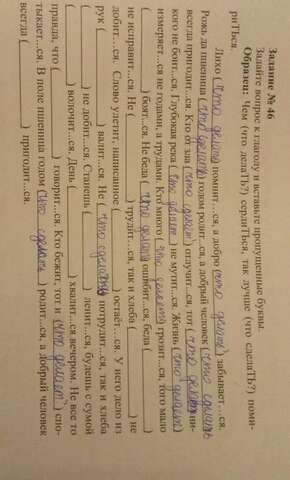 Задание № 46
Задайте вопрос к глаголу и вставьте пропущенные буквы.
Образец: Чем (что делаТЬ?) сердиТЬся, так лучше (что сделаТЬ?) поми-
риТЬся.
Лихо (что делает) помнит...ся, а добро (что делает) забывает...ся.
Рожь да пшеница (что делает) годом родит...ся, а добрый человек (что сделать
всегда пригодит...ся. Кто от зла (что сделает) отлучит...ся, тот (что делает ни-
кого не боит...ся. Глубокая река (что делает) не мутит...ся. Жизнь (что делает)
измеряет...ся не годами, а трудами. Кто много (что делает) грозит...ся, того мало
( ) боят...ся. Не беда (что делать) ошибит...ся, беда ( ) не
не исправит...ся. Не ( ) трудит...ся, так и хлеба ( ) не
добит...ся. Слово улетит, написанное ( ) остаёт...ся. У него дело из
рук ( ) валит...ся. Не (что сделать) потрудит...ся, так и хлеба
( ) не добит...ся. Станешь ( ) ленит...ся, будешь с сумой
( ) волочит...ся. День ( ) хвалит...ся вечером. Не все то
правда, что ( ) говорит...ся. Кто бежит, тот и (что делает) спо-
тыкает...ся. В поле пшеница годом (что сделать) родит...ся, а добрый человек
всегда ( ) пригодит...ся.